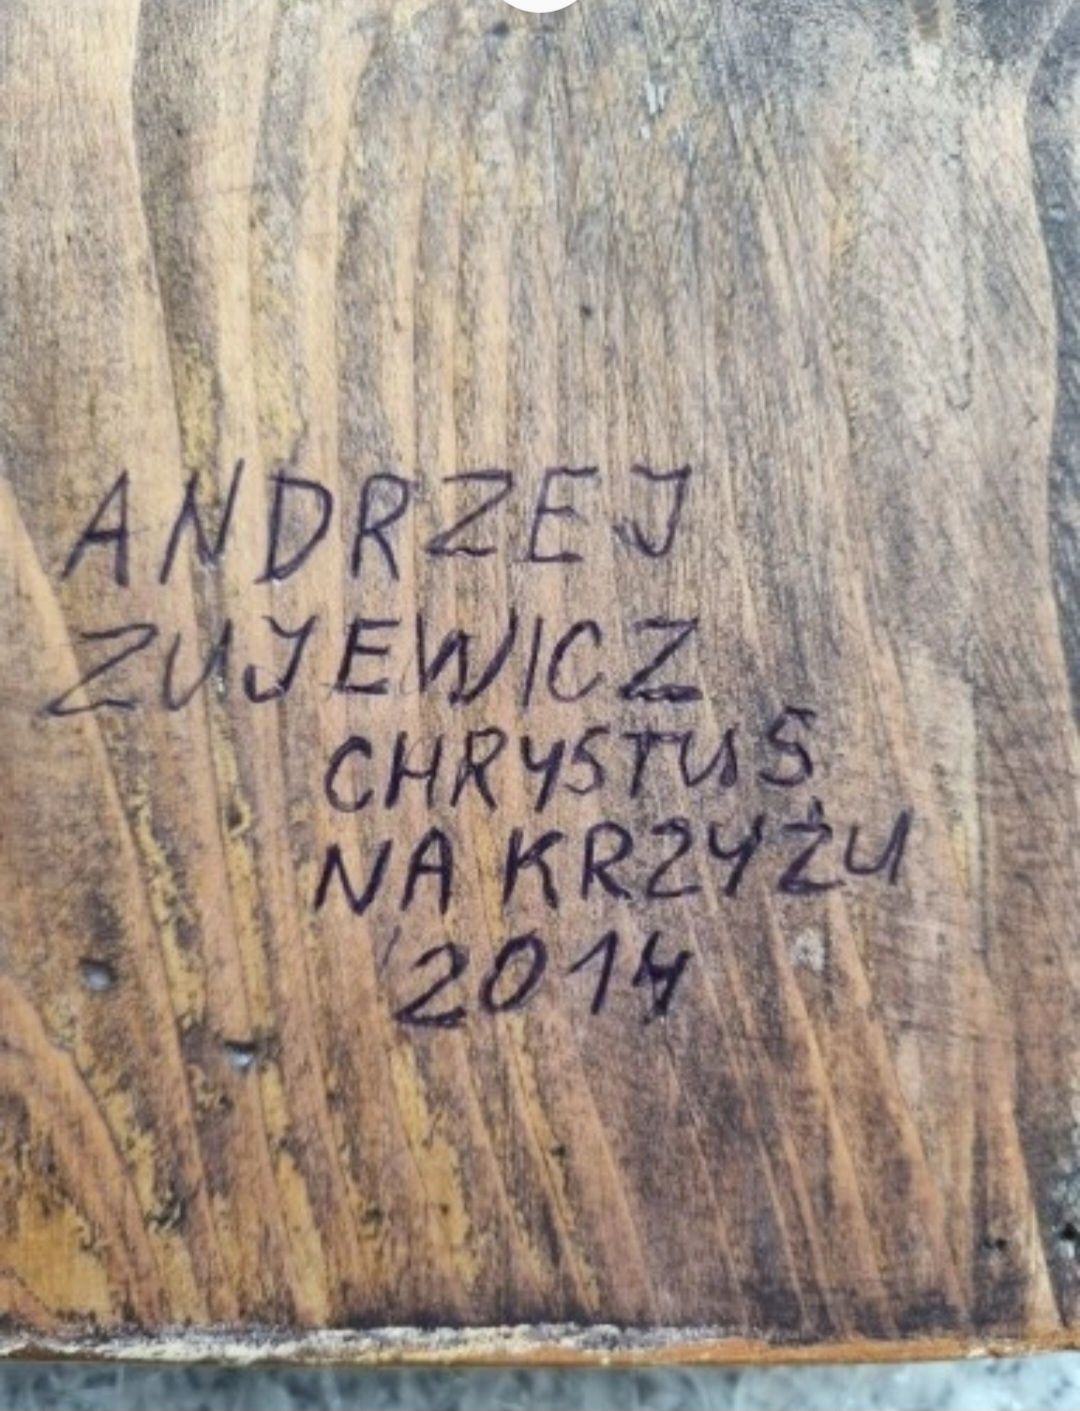 ANDRZEJ
ZUJEWICZ
CHRYSTUS
NA KRZYŻU
2014